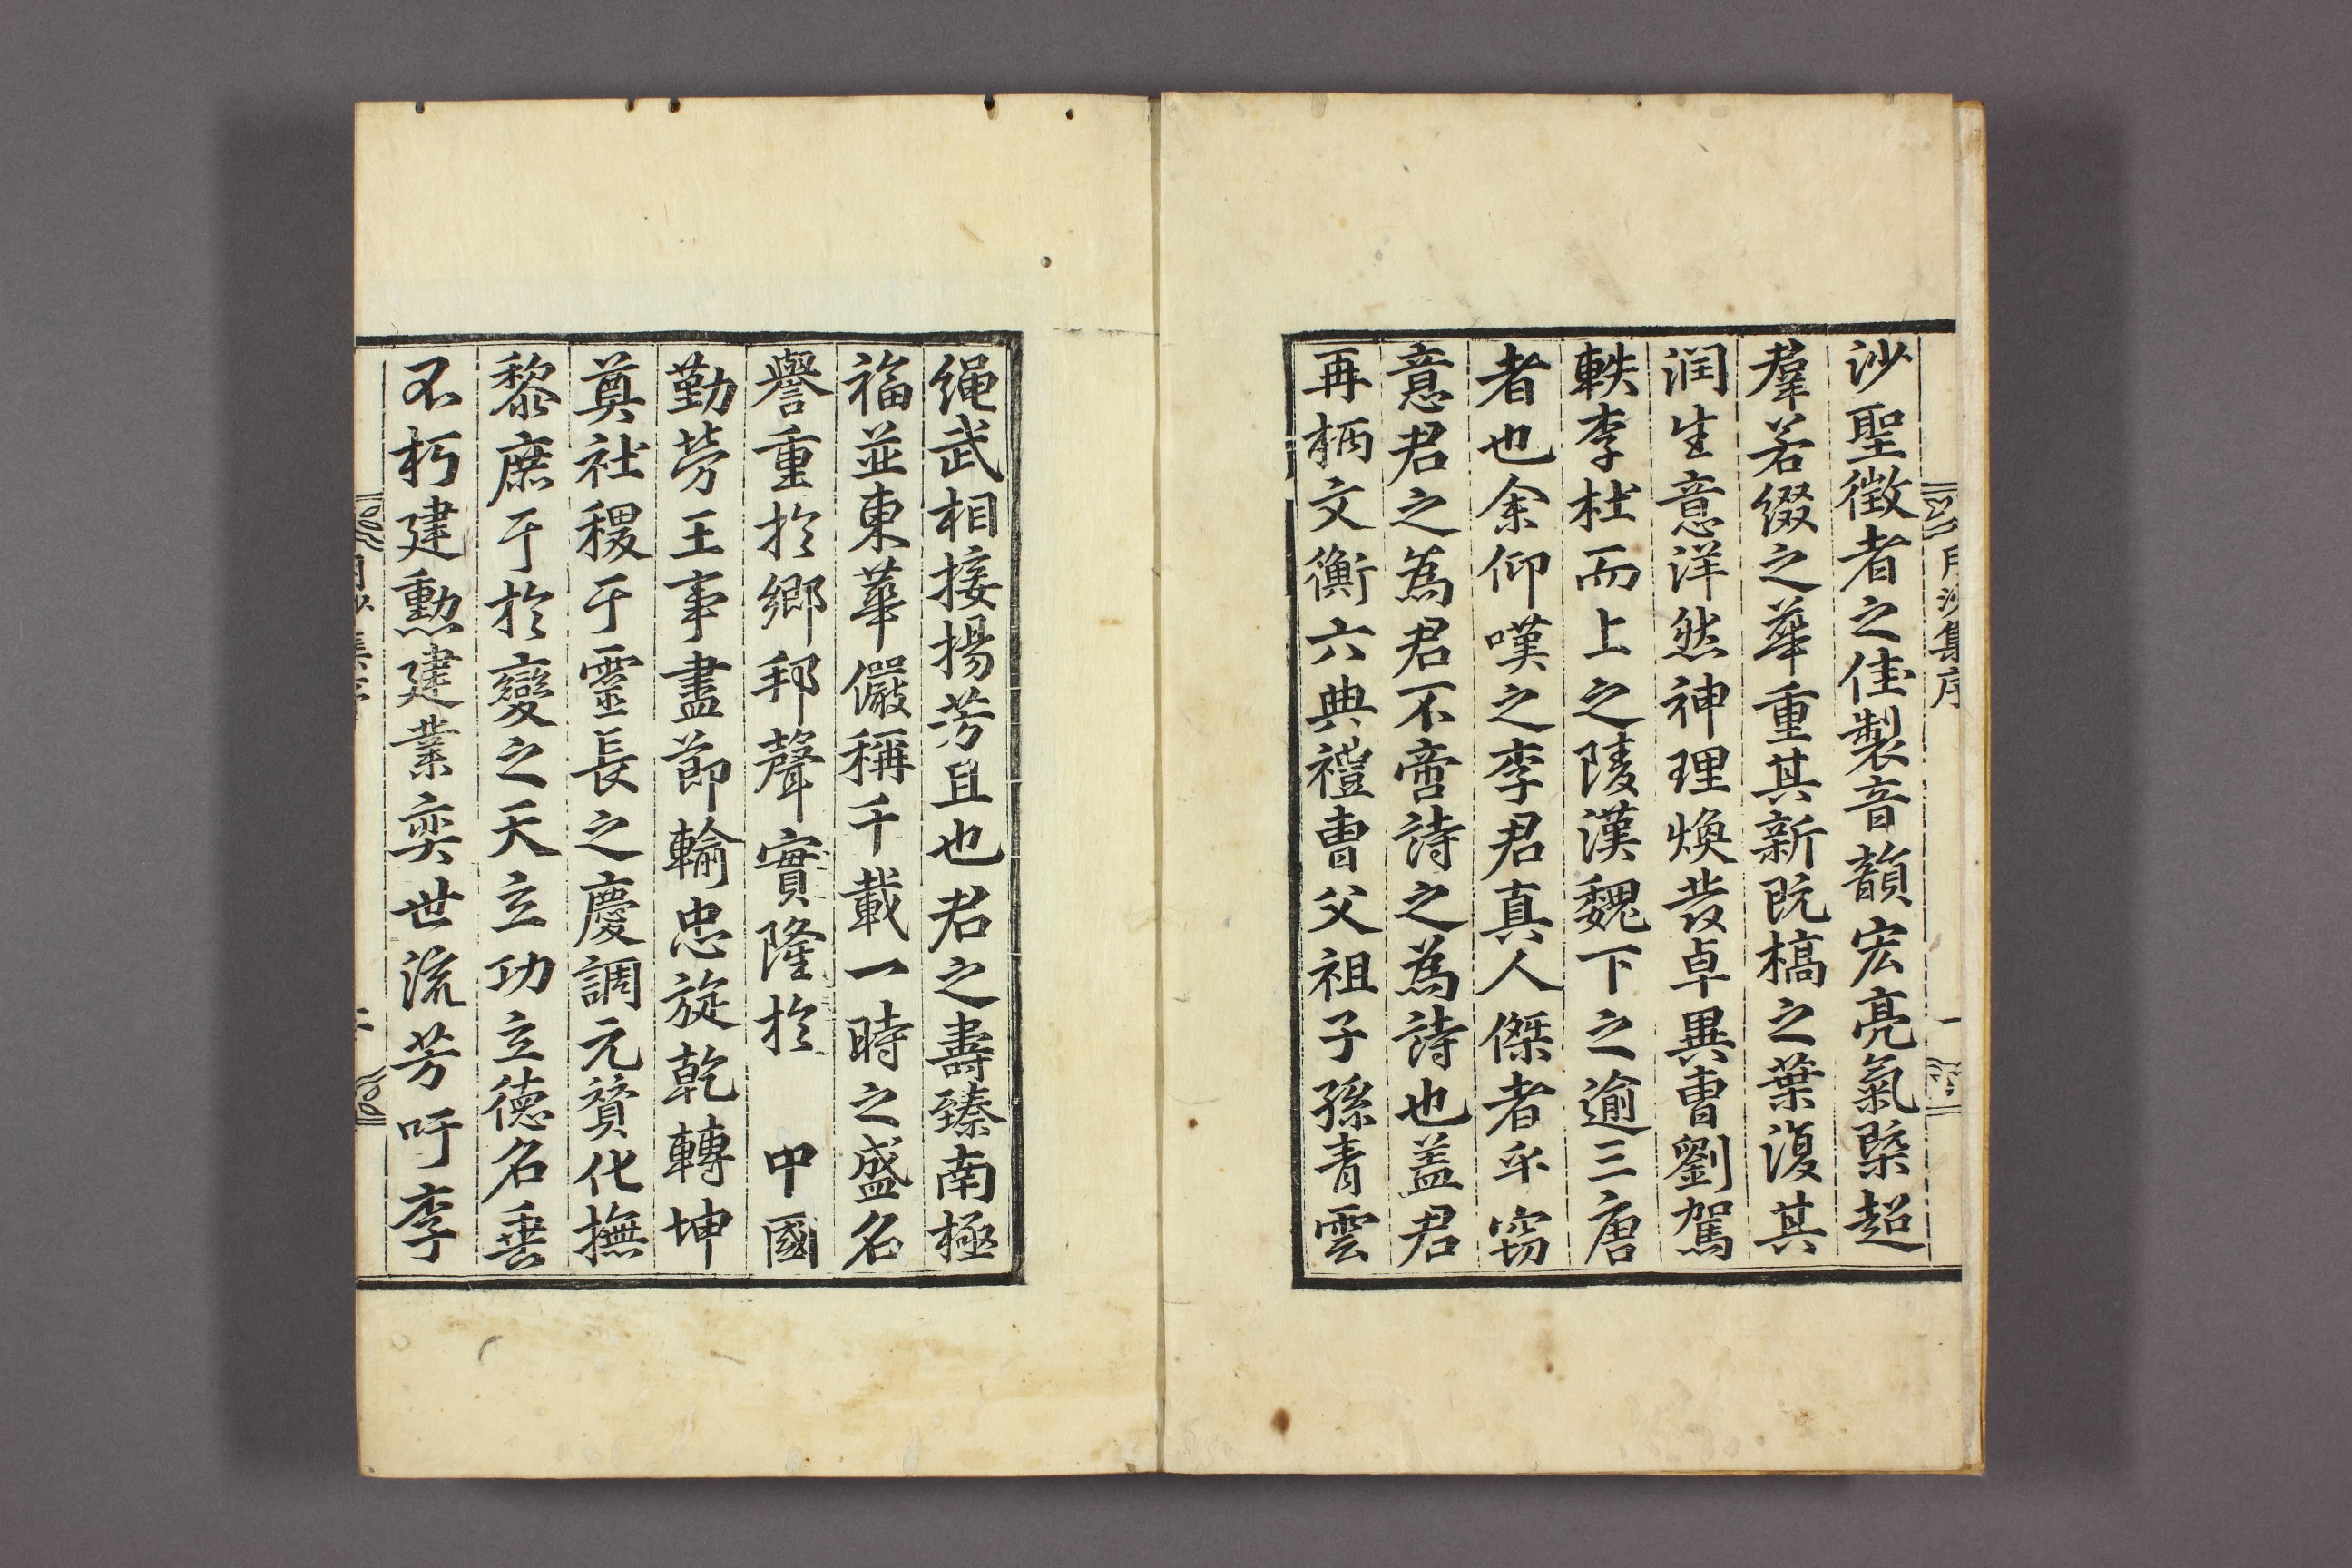 月沙集序
一
沙聖徵者之佳製音韻宏亮氣槩超
羣若綴之華重其新既槁之葉復其
潤生意洋然神理煥發卓異曺劉駕
軼李杜而上之陵漢魏下之逾三唐
者也余仰嘆之李君真人傑者乎窃
意君之為君不啻詩之為詩也盖君
再柄文衡六典禮曺父祖子孫青雲
繩武相接揚芳且也君之壽臻南極
福並東華儼稱千載一時之盛名
譽重於鄉邦聲實隆於　中國
勤勞王事盡節輸忠旋乾轉坤
奠社稷于靈長之慶調元贊化撫
黎庶于於變之天立功立德名垂
不朽建勳建業奕世流芳吁李